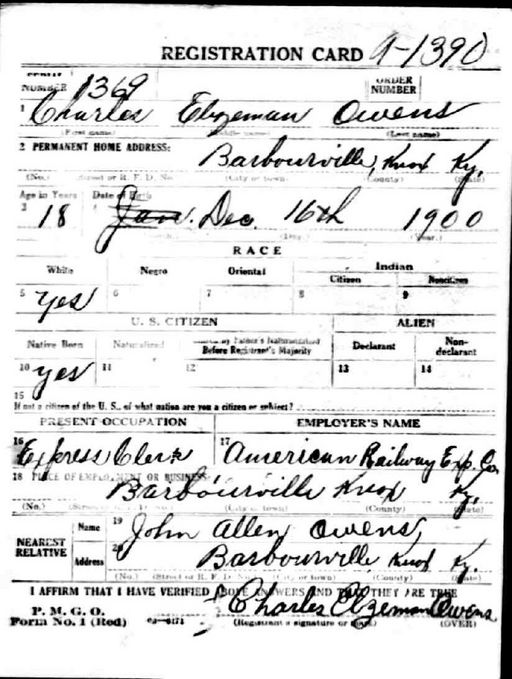 REGISTRATION CARD A-1390
SERIAL NUMBER 1369 ORDER NUMBER
1 Charles Elzeman Owens
(First name) (Middle name) (Last name)
2 PERMANENT HOME ADDRESS:
Barbourville, Knox Ky.
(No.) (Street or R. F. D. No.) (City or town) (County) (State)
Age in Years Date of Birth
3 18 Jan. Dec. 16th 1900
(Day.) (Year.)
RACE
White Negro Oriental Indian
Citizen Noncitizen
5 yes 6 7 8 9
U. S. CITIZEN ALIEN
Native Born Naturalized Citizen by Father's Naturalization Before Registrant's Majority Declarant Non-declarant
10 yes 11 12 13 14
15
If not a citizen of the U. S., of what nation are you a citizen or subject?
PRESENT OCCUPATION EMPLOYER'S NAME
16 Express Clerk 17 American Railway Exp. Co.
18 PLACE OF EMPLOYMENT OR BUSINESS:
Barbourville Knox Ky.
(No.) (City or town) (County) (State)
NEAREST RELATIVE Name 19 John Allen Owens,
Address 20 Barbourville Knox Ky.
(No.) (Street or R. F. D. No.) (City or town) (County) (State)
I AFFIRM THAT I HAVE VERIFIED ABOVE ANSWERS AND THAT THEY ARE TRUE
P. M. G. O.
Form No. 1 (Red) Charles Elzeman Owens
(Registrant's signature or mark) (OVER)